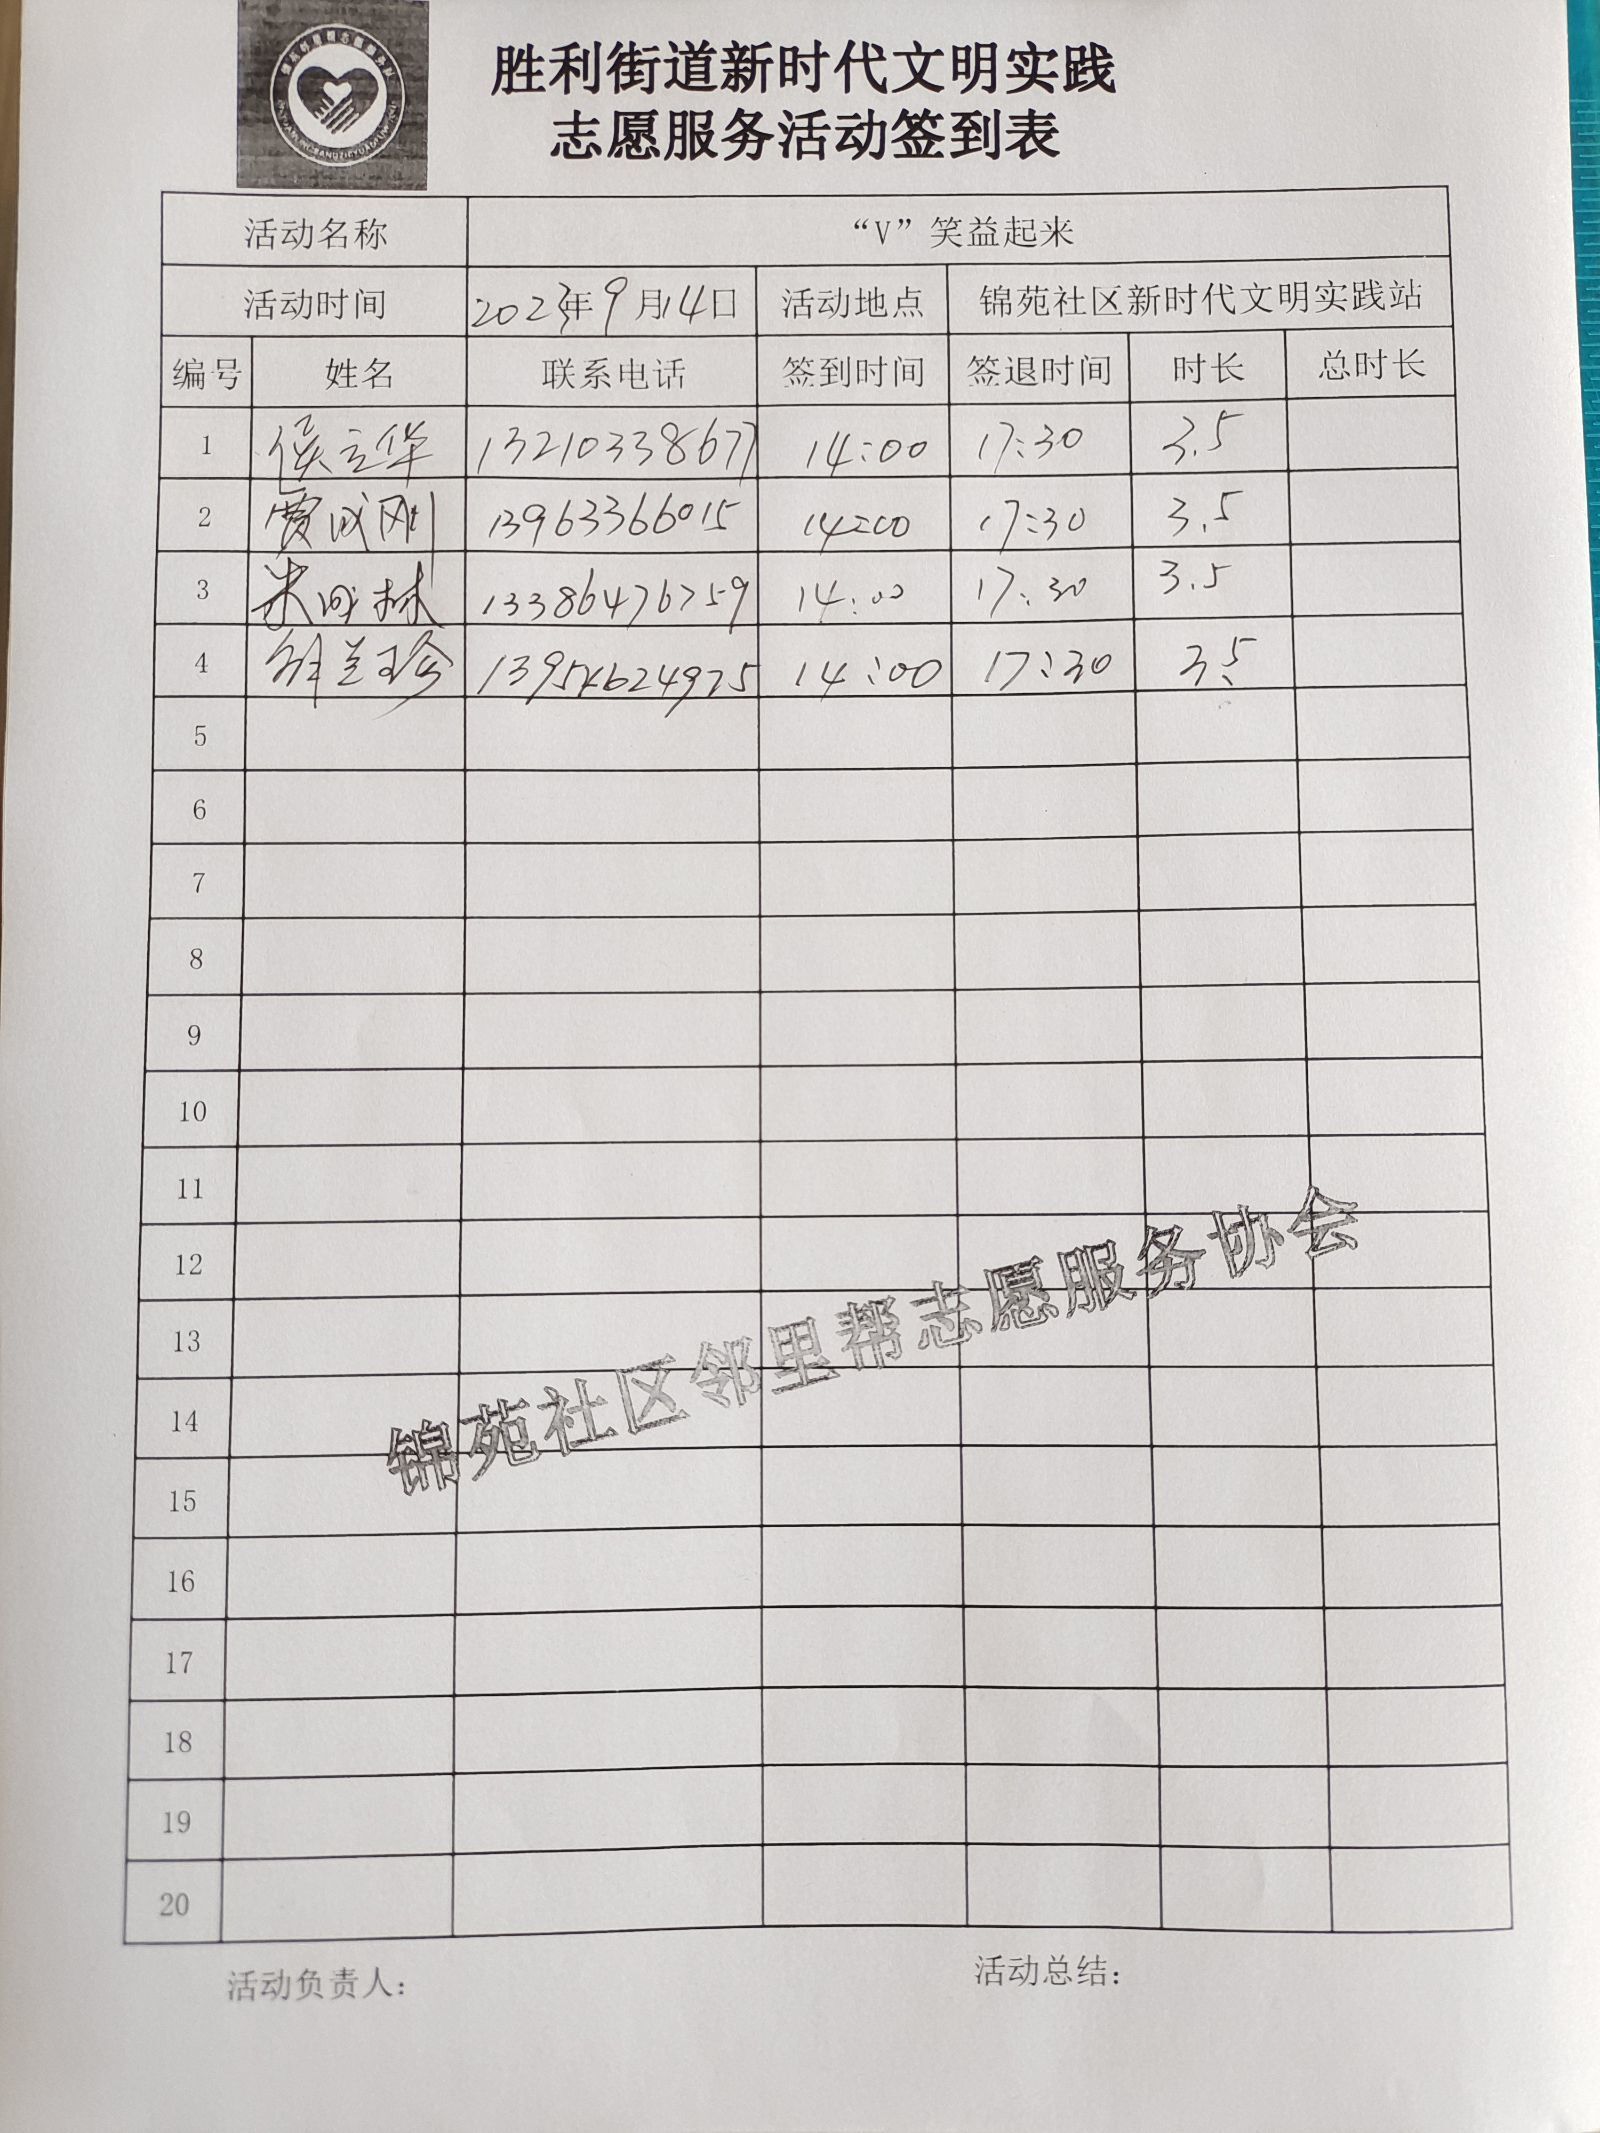 胜利街道新时代文明实践
志愿服务活动签到表
活动名称 “V”笑益起来
活动时间 2023年9月14日 活动地点 锦苑社区新时代文明实践站
编号 姓名 联系电话 签到时间 签退时间 时长 总时长
1 侯立华 13210338677 14:00 17:30 3.5
2 贾成刚 13963366015 14:00 17:30 3.5
3 米成林 13386476759 14:00 17:30 3.5
4 兰珍 13954624975 14:00 17:30 3.5
5
6
7
8
9
10
11
12
13
14
15
16
17
18
19
20
锦苑社区邻里帮志愿服务协会
活动负责人： 活动总结：